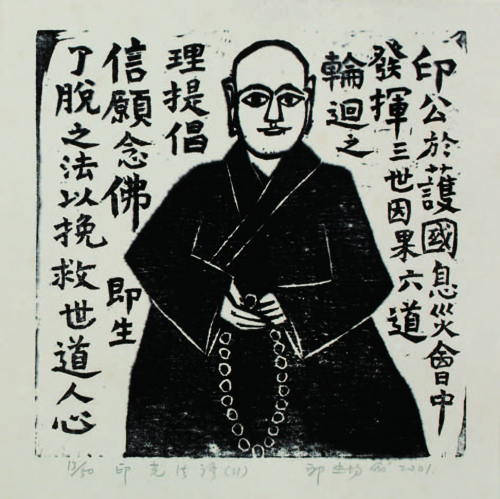 印公於護國息災會中
發揮三世因果六道
輪迴之
理提倡
信願念佛 即生
了脫之法以挽救世道人心
13/50 印光法語(31) 2001.